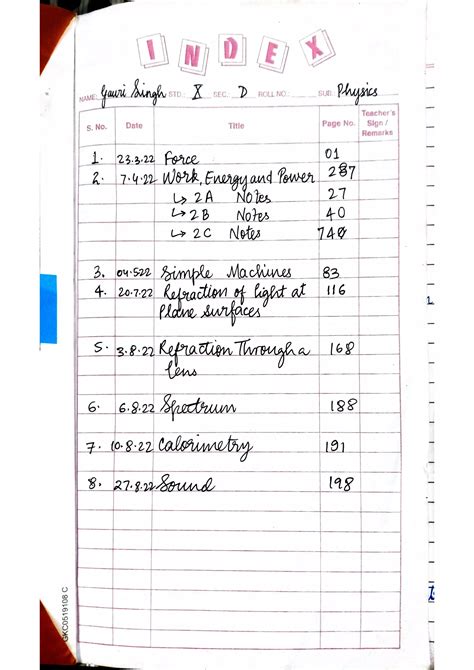 INDEX
NAME: Gauri Singh STD.: X SEC.: D ROLL NO.: SUB.: Physics
S. No. Date Title Page No. Teacher's Sign / Remarks
1. 23.3.22 Force 01
2. 7.4.22 Work, Energy and Power 27
↳ 2A Notes 27
↳ 2B Notes 40
↳ 2C Notes 74
3. 04.522 Simple Machines 83
4. 20.7.22 Refraction of light at 116
Plane Surfaces
5. 3.8.22 Refraction Through a 168
lens
6. 6.8.22 Spectrum 188
7. 10.8.22 Calorimetry 191
8. 27.8.22 Sound 198
GKC0519108 C